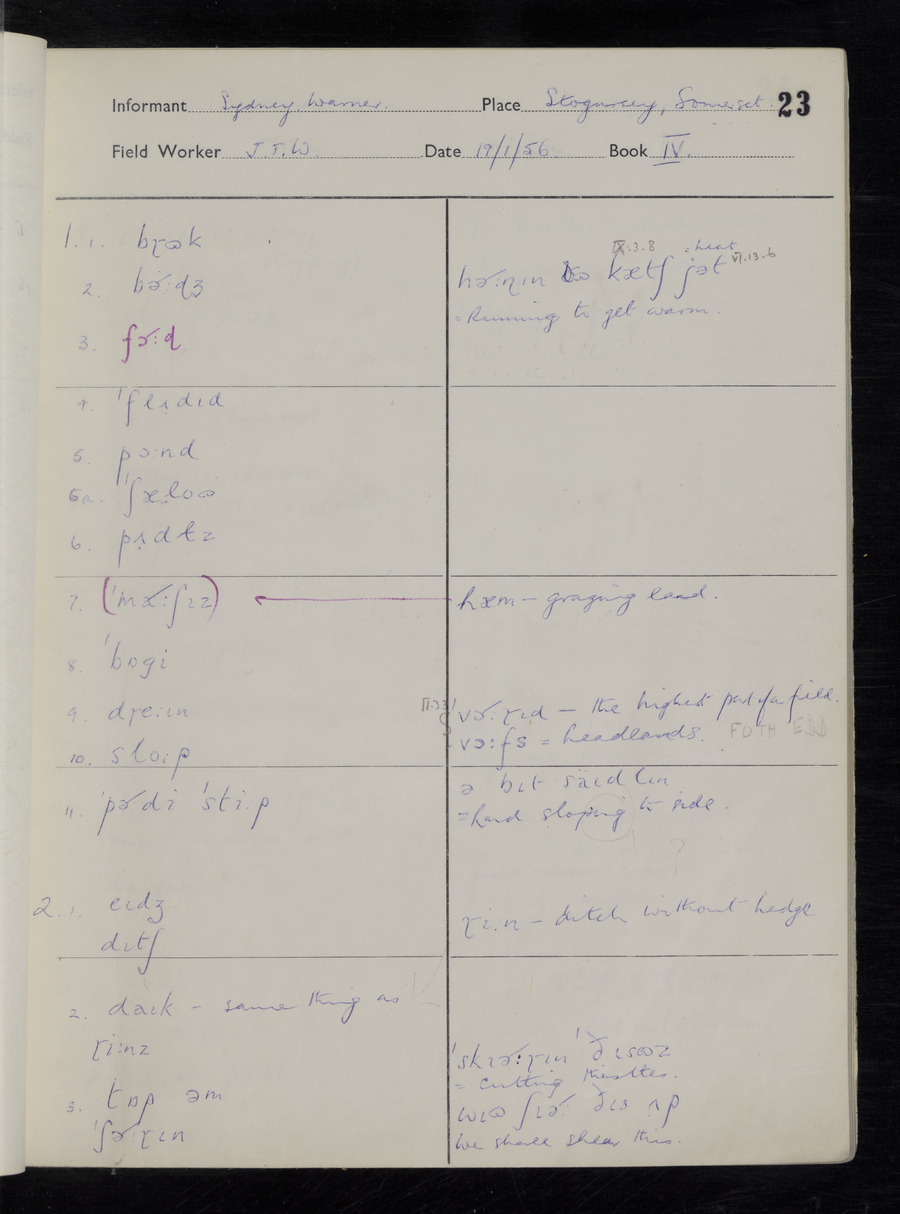 Informant Sydney Warner. Place Stogursey, Somerset. 23
Field Worker J.T.W. Date 19/1/56 Book IV.
1. 1. bɽʊk
2. bɚ:ɖʒ
3. fɔ˞:ɖ
4. ˈflʌdɪd
5. pɔ:nd
5a. ˈʃæloʊ
6. pʌdɫz
7. (ˈmɑ˞:ʃɪz)
8. ˈbɒgi
9. dɽe:ɪn
10. slo:p
11. ˈpɚdi ˈsti:p
2. 1. ɛɪdʒ
dɪtʃ
2. daɪk – same thing as
ɽi:nz
3. tɒp əm
ˈʃɚ:ɽɪn
IX.3.8 = heat VI.13.6
hɚ:ɳɪn kætʃ jət
= Running to get warm.
hæm – grazing land.
vɔ˞:ɽɪd – the highest part of a field.
vɔ:fs = headlands. FOTH EDD
ə bɪt saɪdlɪn
= hard sloping to side.
?
ɽi:n – ditch without hedge
ˈskɪɚ:ɽɪn ðɪsoz
= Cutting thistles.
wɪʊ ʃɪɚ: ðɪs ʌp
we shall shear this.